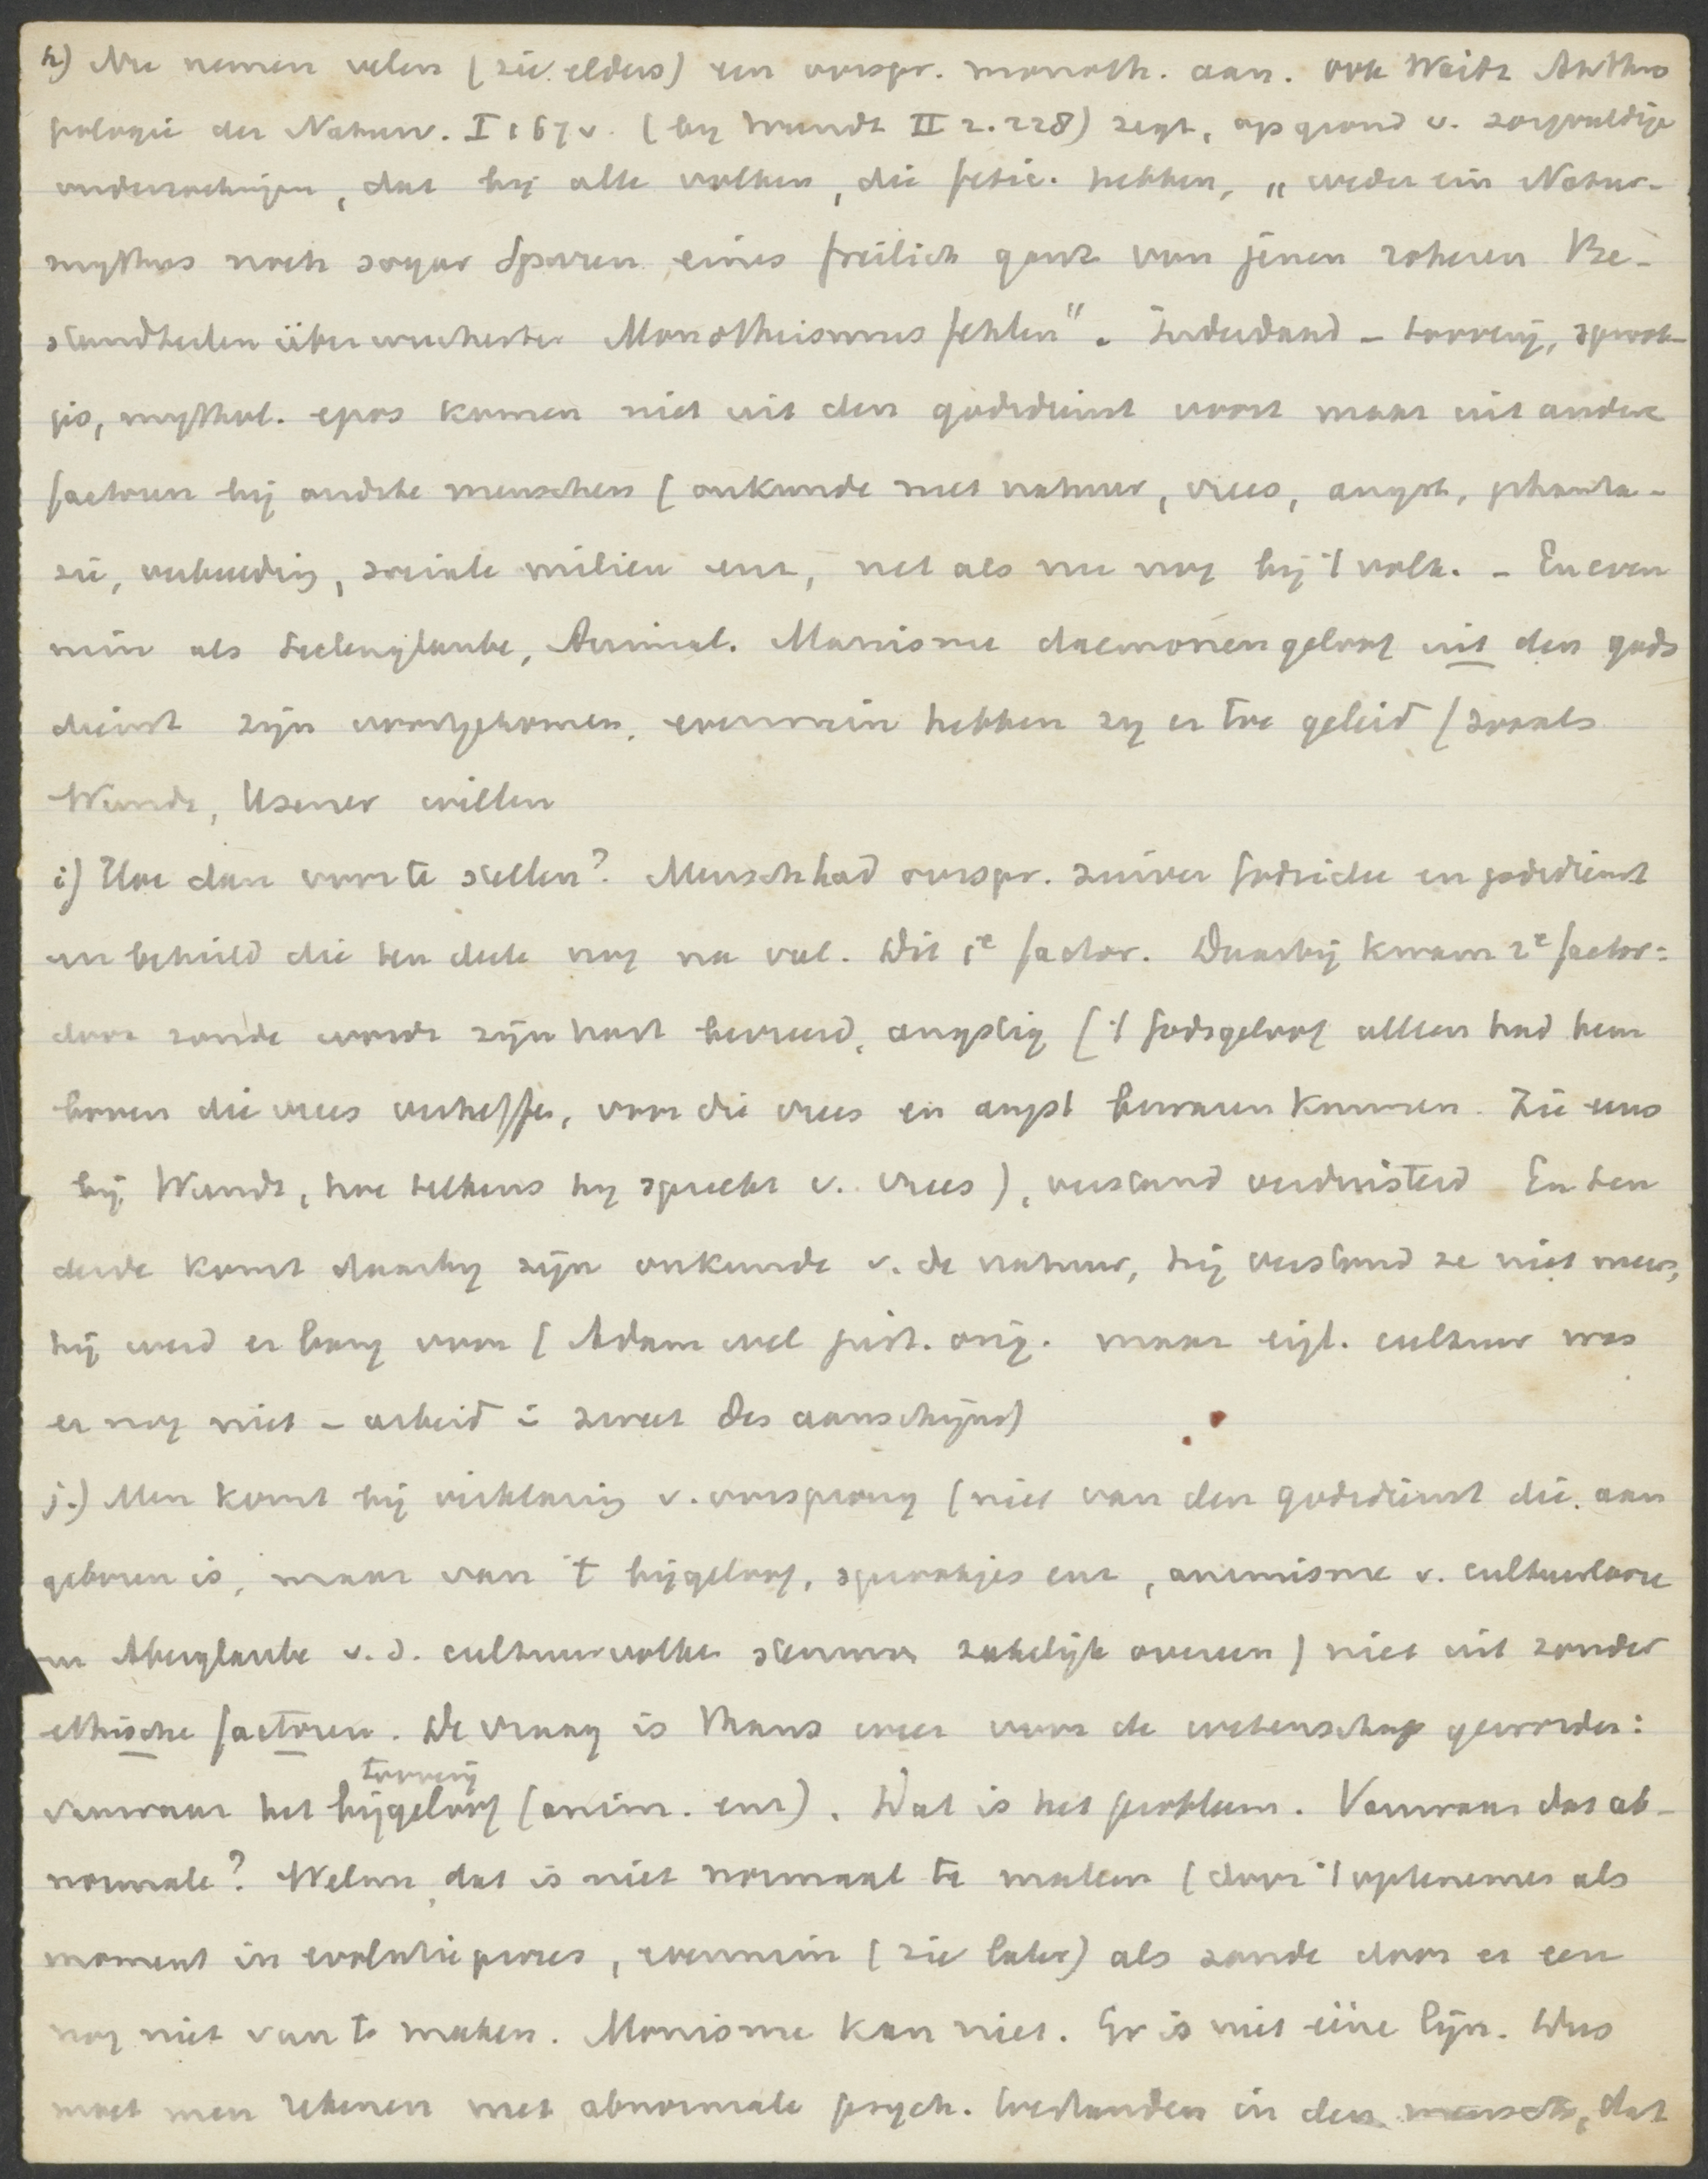 h) Nu nemen velen (zie elders) een oorspr. monoth. aan. ook Waitz Anthro
pologie der Naturv. I 167 v. (by Wundt II 2. 228) zegt, op grond v. zorgvuldige
onderzoekingen, dat bij alle volken, die fetic. hebben, „weder ein Natur-
mythus noch sogar Spuren eines freilich ganz von jenen roheren Be-
standteilen überwucherter Monotheismus fehlen”. Inderdaad – toovery, sprook-
jes, mythol. epos komen niet uit den godsdienst voort maar uit andere
factoren bij oudste menschen (onkunde met natuur, vrees, angst, phanta-
zie, verbeelding, sociale milieu enz, net als nu nog bij 't volk. – En even
min als Seelenglaube, Animal. Manisme daemonengeloof uit den gods
dienst zijn voortgekomen, evenmin hebben zy er toe geleid (zooals
Wundt, Usener willen
i) Hoe dan voor te stellen? Mensch had oorspr. zuiver Godsidee en godsdienst
en behield die ten deele nog na val. Dit 1e factor. Daarbij kwam 2e factor:
door zonde wordt zijn hart bevreesd, angstig ('t Godsgeloof alleen had hem
boven die vrees verheffen, voor die vrees en angst bewaren kunnen. Zie eens
bij Wundt, hoe telkens hy spreekt v. vrees), verstand verduisterd En ten
derde komt daarby zijn onkunde v. de natuur, hij verstond ze niet meer,
hij werd er bang voor (Adam wel just. orig. maar eigl. cultuur was
er nog niet – arbeid i: zweet des aanschijns)
j.) Men komt bij verklaring v. oorsprong (niet van den godsdienst die aan
geboren is, maar van 't bijgeloof, sprookjes enz, animisme v. cultuurlooze
en Aberglaube v. d. cultuurvolken stemmen zakelijk overeen) niet uit zonder
ethische factoren. De vraag is thans weer voor de wetenschap geworden:
toovery
vanwaar het bijgeloof (anim. enz). Dat is het probleem. Vanwaar dat ab-
normale? Welnu, dat is niet normaal te maken (door 't optenemen als
moment in evolutieproces, evenmin (zie later) als zonde door er een
nog niet van te maken. Monisme kan niet. Er is niet ééne lijn. Dus
moet men rekenen met abnormale psych. toestanden in den mensch, dat